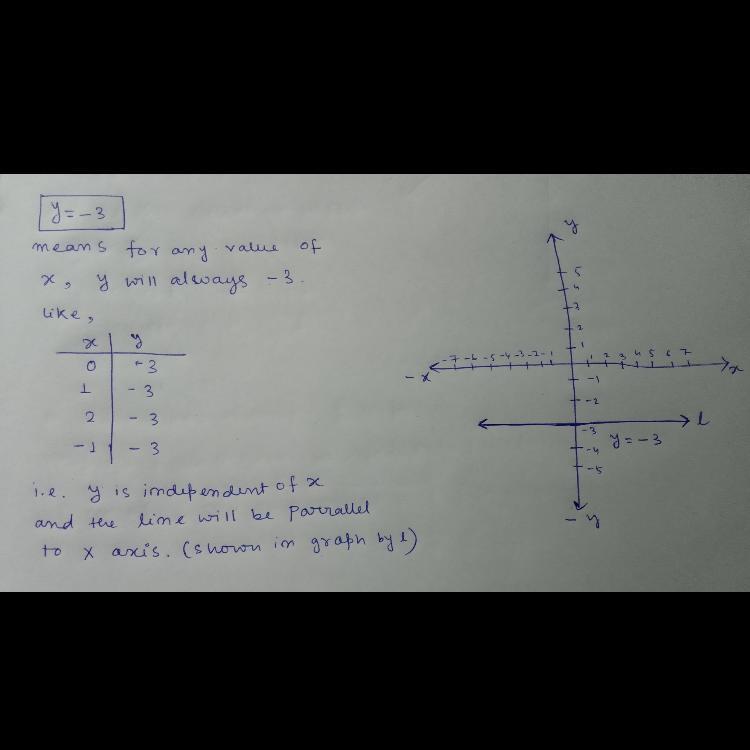 y = -3
means for any value of
x, y will always -3.
like,
x y
0 -3
1 -3
2 -3
-1 -3
i.e. y is independent of x
and the line will be Parrallel
to x axis. (shown in graph by l)
y
5
4
3
2
1
-7 -6 -5 -4 -3 -2 -1 1 2 3 4 5 6 7
-x x
-1
-2
l
-3
y = -3
-4
-5
-y